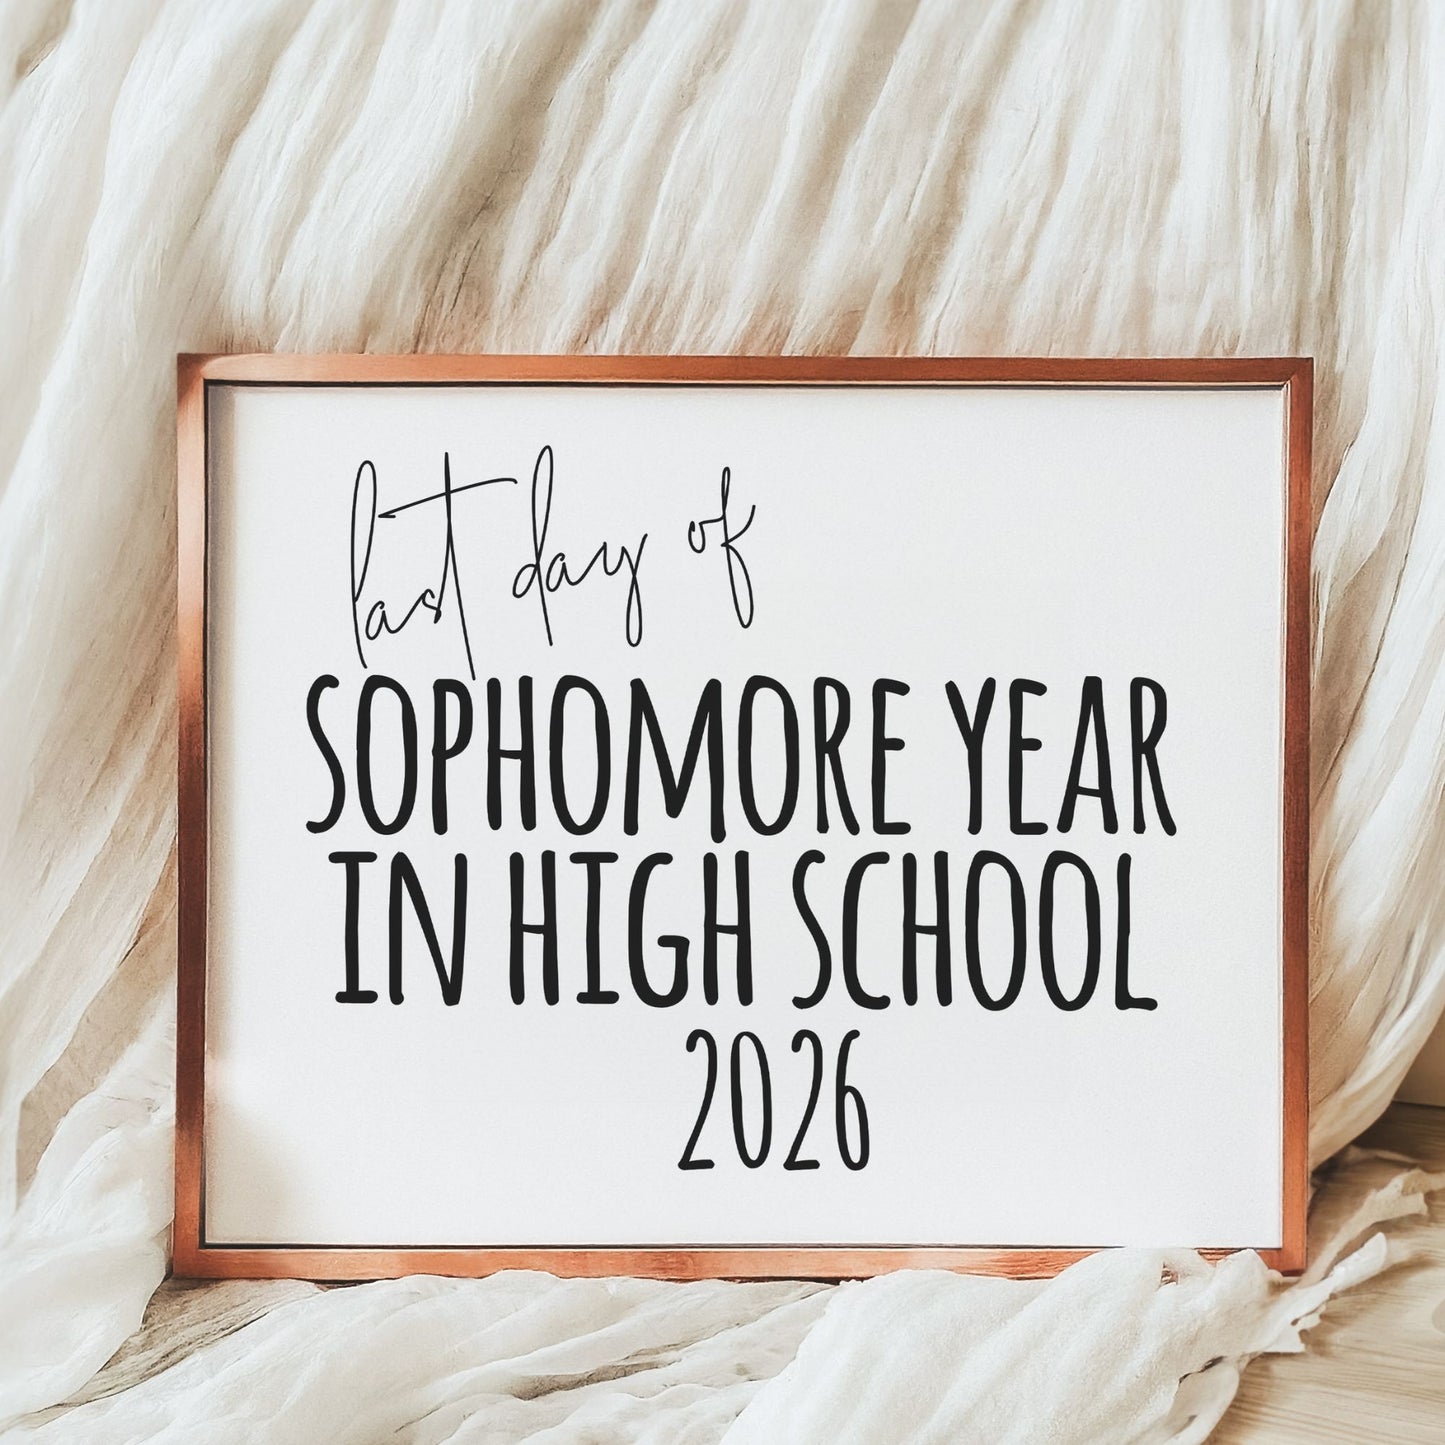 last day of
SOPHOMORE YEAR
IN HIGH SCHOOL
2026